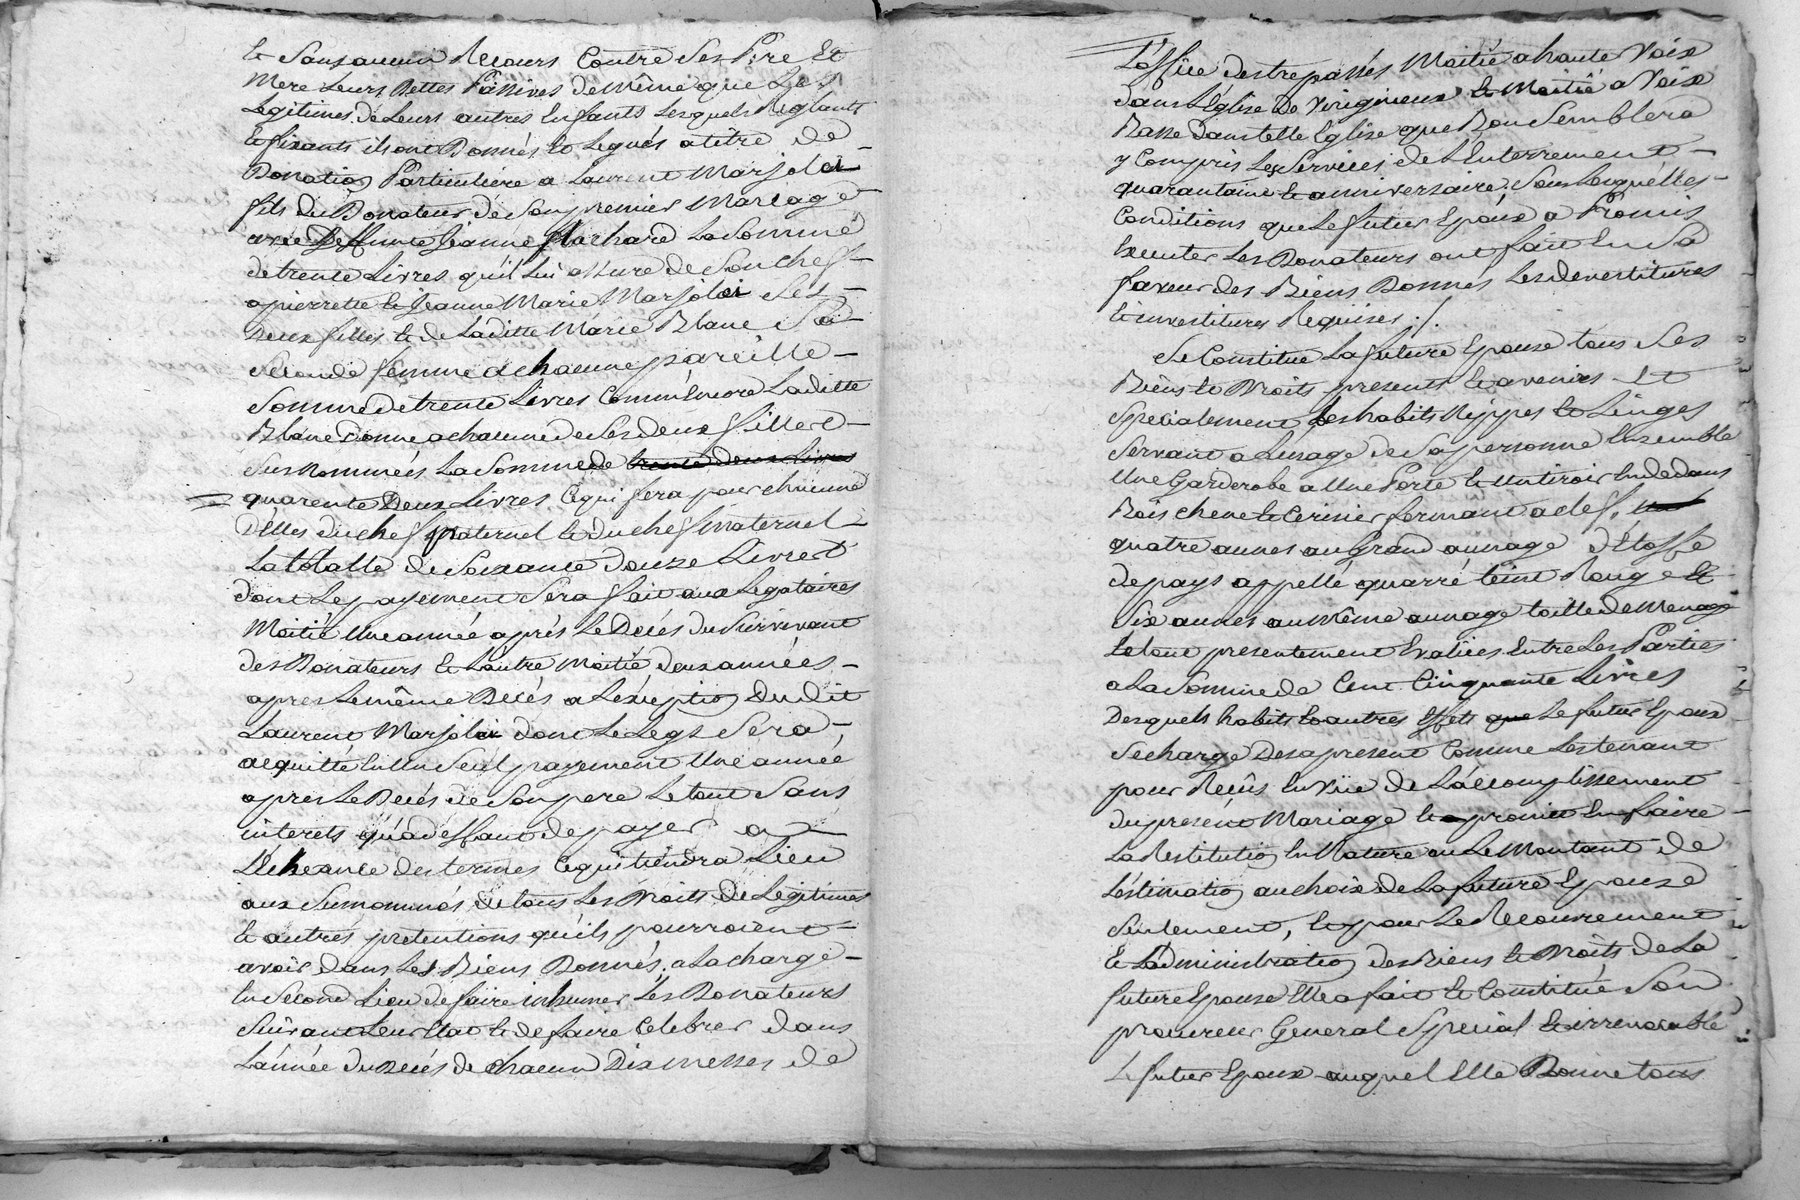 et sans aucun Recours Contre ses Pere Et
Mere Leurs Dettes Passives de même que Les
Legitimes de Leurs autres Enfants Lesquels Reglants
et fixants ils ont Donnés et Legués a titre de
Donation Particuliere a Laurent Marjolet
fils du Donateur de Son premier Mariage
avec Deffunte Jeanne Flachard La Somme
de trente Livres qu'il Lui assure de Son Cheff
a pierrette et Jeanne Marie Marjolet Ses
Deux filles et de Laditte Marie Blanc Sa
Seconde femme a chacune pareille
Somme de trente Livres Comm'Encore Laditte
Blanc donne a chacune de Ses deux filles
Sus Nommées La Somme de trente deux Livres
quarente Deux Livres Ce qui fera pour chacune
D'Elles du chef paternel et du chef maternel
La totalle de Soixante douze Livres
dont Le payement Sera fait aux Legataires
Moitié Une année après Le Décés du Survivant
des Donateurs et L'autre Moitié deux années
apres Le même Decés a L'exception Du dit
Laurent Marjolet dont Le Legs Sera
acquitté En Un Seul payement Une année
apres Le Decés de Son pere Le tout Sans
interets qu'a deffaut de payer a
L'Echeance des termes Ce qui tiendra Lieu
aux Susnommés de tous Les Droits de Legitimes
et autres pretentions qu'ils pourroient
avoir dans Les Biens Donnés, a La charge
En Second Lieu de faire inhumer Les Donateurs
Suivant Leur Etat et de faire Celebrer dans
L'année du Decés de chacun Dix messes de
L'office des trepassés Moitié a haute Voix
dans L'Eglise De Virigneux et Moitié a Voix
Basse dans telle Eglise que Bon Semblera
y Compris Les Services de L'Enterrement
quarantaine et anniversaire. Sous Lesquelles
Conditions que Le futur Epoux a Promis
Executer Les Donateurs ont fait En Sa
faveur des Biens Donnés Les devestitures
et investitures Requises ./.
Se Constitue La future Epouse tous Ses
Biens et Droits presents et avenirs Et
Specialement Les habits Nippes et Linges
Servant a L'usage de Sa personne Ensemble
Une Garderobe a Une Porte et Un tiroir En dedans
Bois chene et Cerisier fermant a clef,
quatre aunes au Grand aunage d'Etoffe
de pays appellé quarré teint Rouge Et
Six aunes au même aunage toille de Menage
Le tout presentement Evalüées Entre Les Parties
a La Somme de Cent Cinquante Livres
Desquels habits et autres Effets que Le futur Epoux
Se charge Des a present Comme Les tenant
pour Reçûs En Vüe de L'accomplissement
du present Mariage et a promit En faire
La Restitution En Nature ou Le Montant de
L'estimation au choix de La future Epouse
Seulement, Et pour Le Recouvrement
et L'administration des Biens et Droits de La
future Epouse Elle a fait et Constitué Son
procureur General Special et irrevocable
Le futur Epoux auquel Elle Donne tous